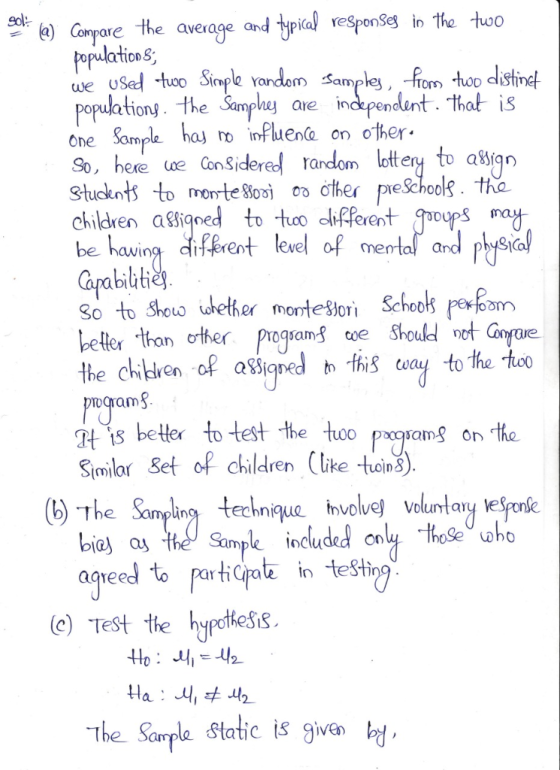 Sol:-
(a) Compare the average and typical responses in the two
populations;
we used two Simple random samples, from two distinct
populations. the Samples are independent. that is
one Sample has no influence on other.
So, here we Considered random lottery to assign
Students to montessori or other preschools. the
children assigned to two different groups may
be having different level of mental and physical
Capabilities.
So to Show whether montessori Schools perform
better than other programs we should not Compare
the children of assigned in this way to the two
programs.
It is better to test the two programs on the
Similar Set of children (like twins).
(b) The Sampling technique involves voluntary response
bias as the Sample included only those who
agreed to participate in testing.
(c) Test the hypothesis.
Ho: μ₁ = μ₂
Ha: μ₁ ≠ μ₂
The Sample Static is given by,